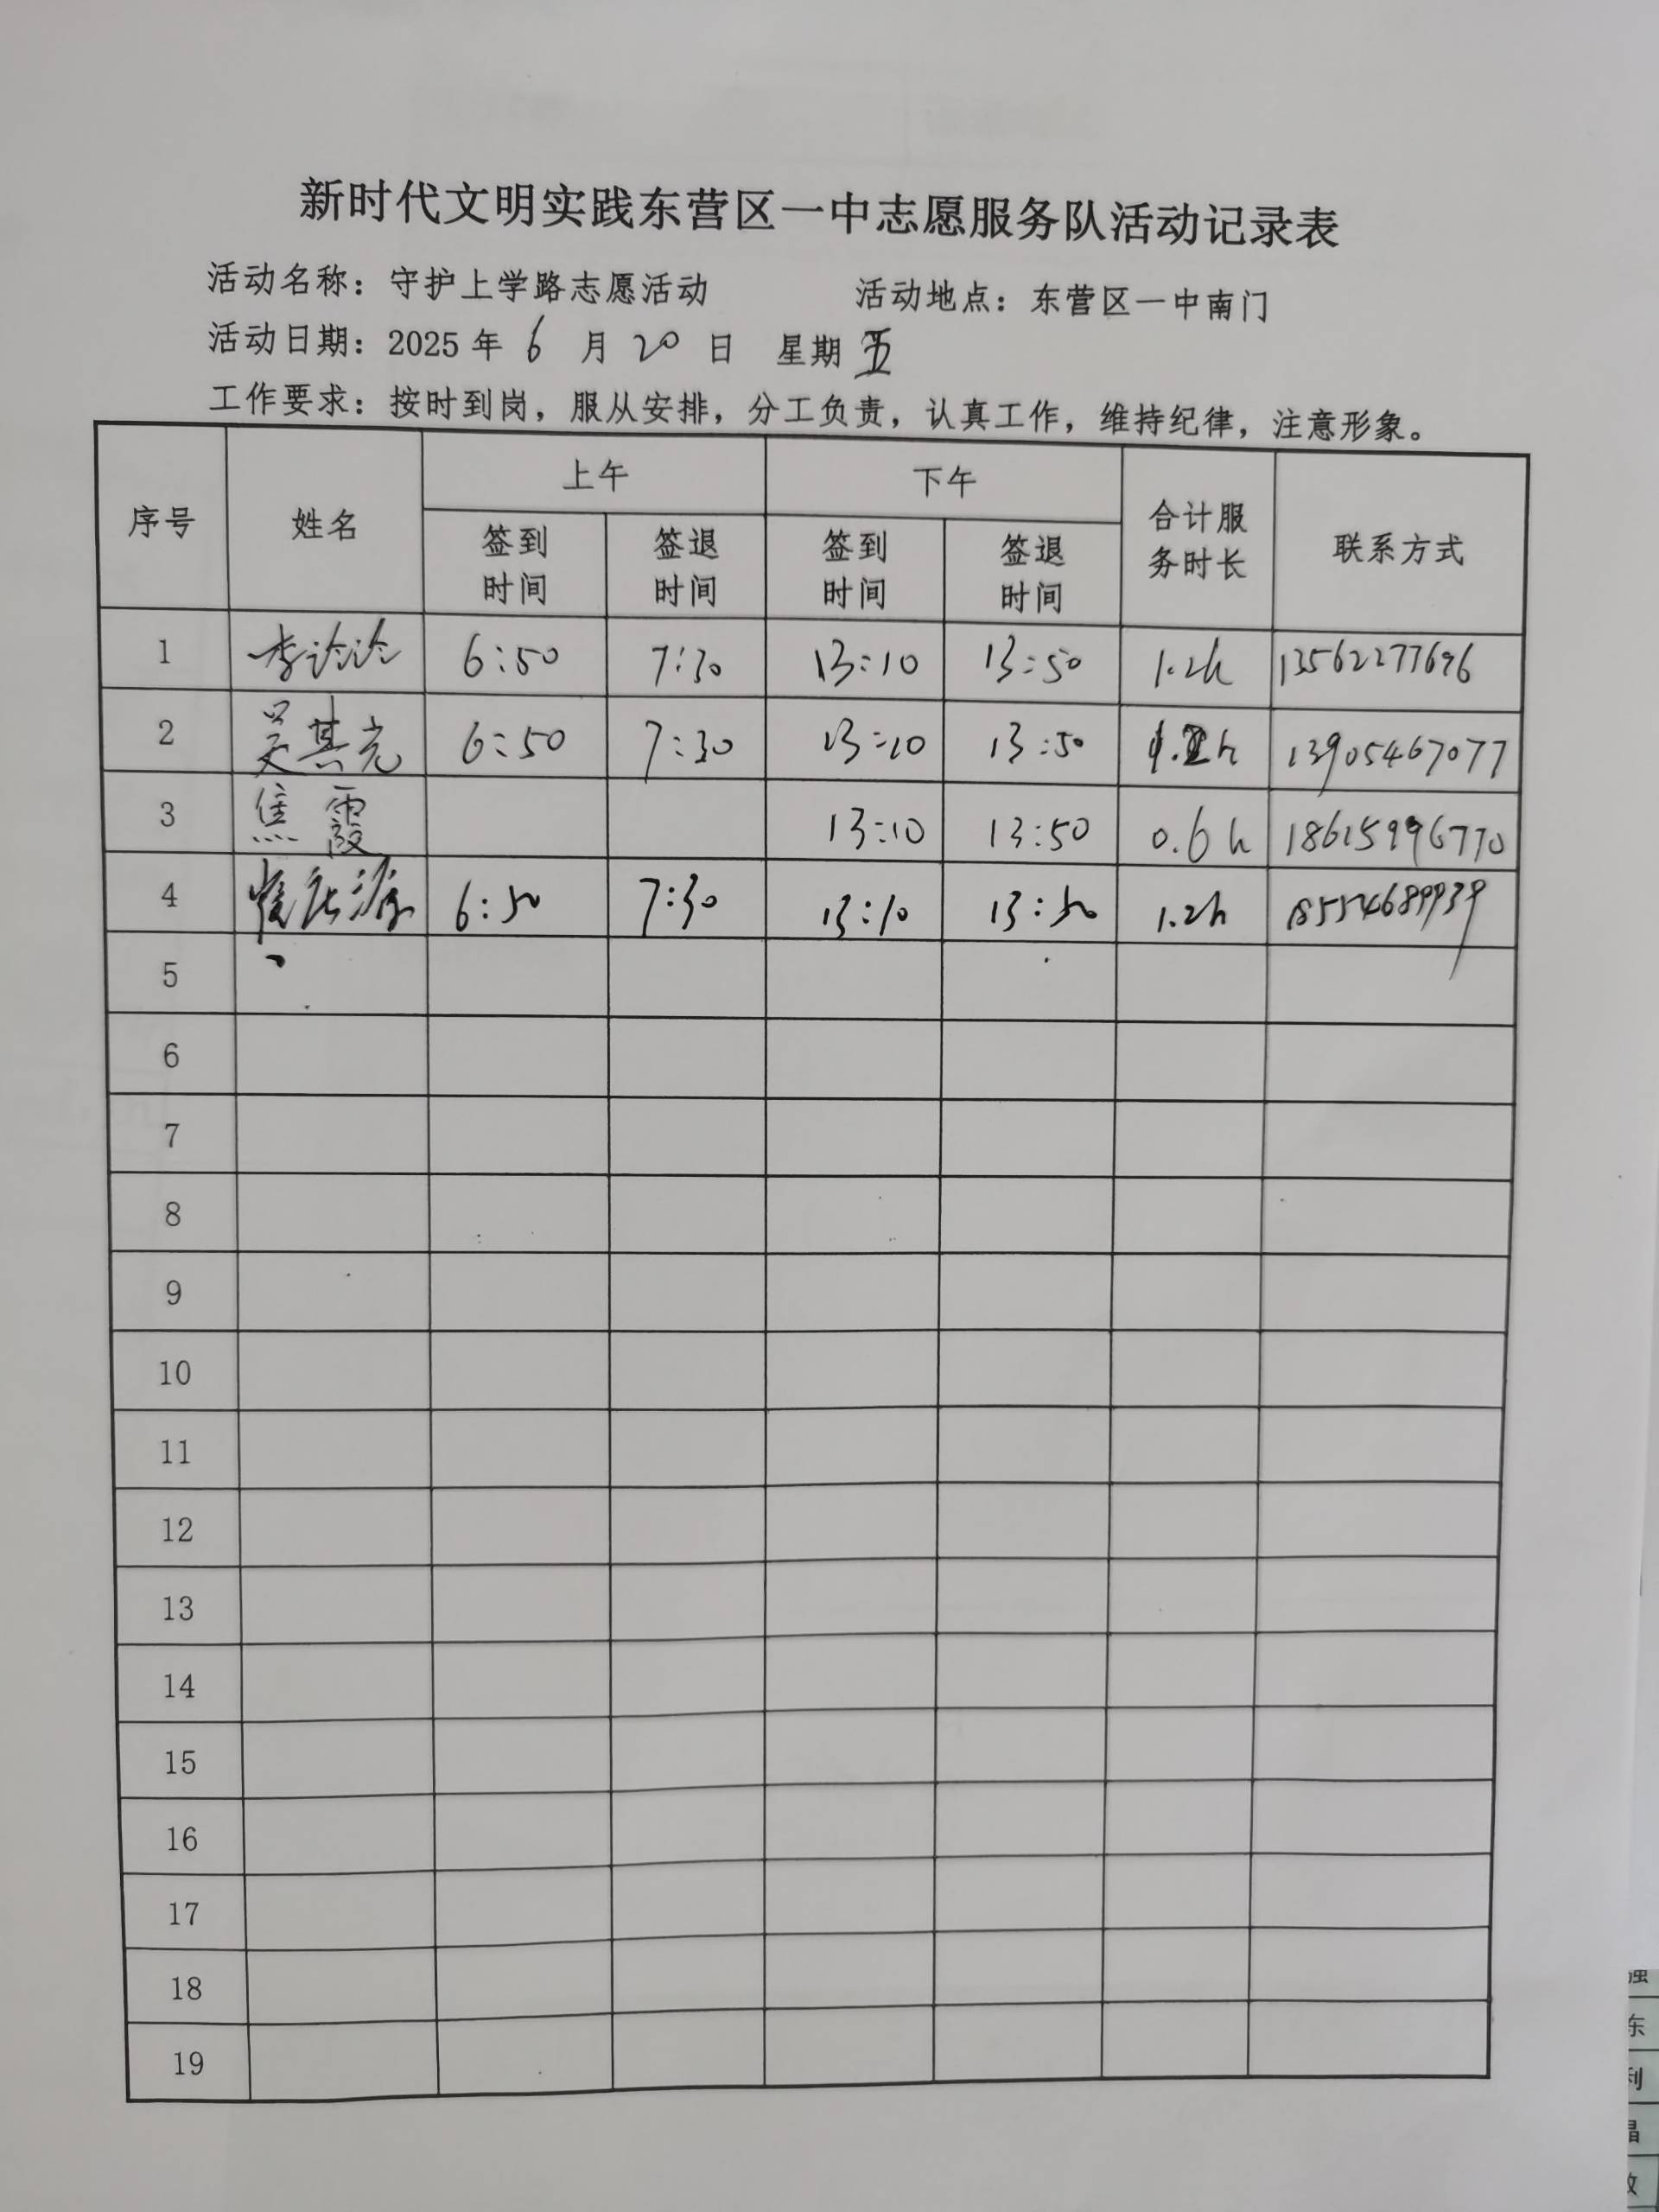 新时代文明实践东营区一中志愿服务队活动记录表
活动名称：守护上学路志愿活动 活动地点：东营区一中南门
活动日期：2025年 6 月 20 日 星期 五
工作要求：按时到岗，服从安排，分工负责，认真工作，维持纪律，注意形象。
序号 姓名 上午 下午 合计服务时长 联系方式
签到时间 签退时间 签到时间 签退时间
1 李论论 6:50 7:30 13:10 13:50 1.2h 13562277696
2 吴其光 6:50 7:30 13:10 13:50 1.2h 13905467077
3 焦霞 13:10 13:50 0.6h 18615996770
4 6:50 7:30 13:10 13:50 1.2h 18554689939
5
6
7
8
9
10
11
12
13
14
15
16
17
18
19
强
东
利
晶